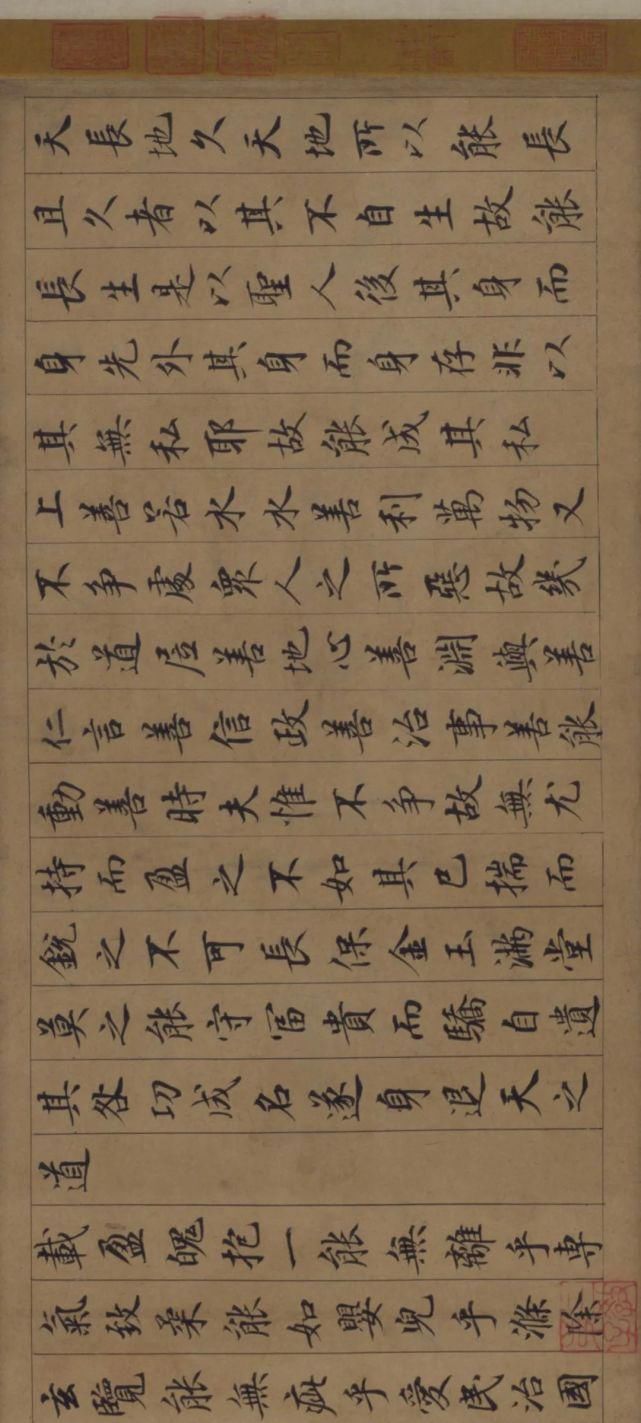 天長地久天地所以能長
且久者以其不自生故能
長生是以聖人後其身而
身先外其身而身存非以
其無私耶故能成其私
上善若水水善利萬物又
不爭處衆人之所惡故幾
於道居善地心善淵與善
仁言善信政善治事善能
動善時夫惟不爭故無尤
持而盈之不如其已揣而
銳之不可長保金玉滿堂
莫之能守富貴而驕自遺
其咎功成名遂身退天之
道
載盈魄抱一能無離乎専
氣致柔能如嬰兒乎滌除
玄覽能無疵乎愛民治國